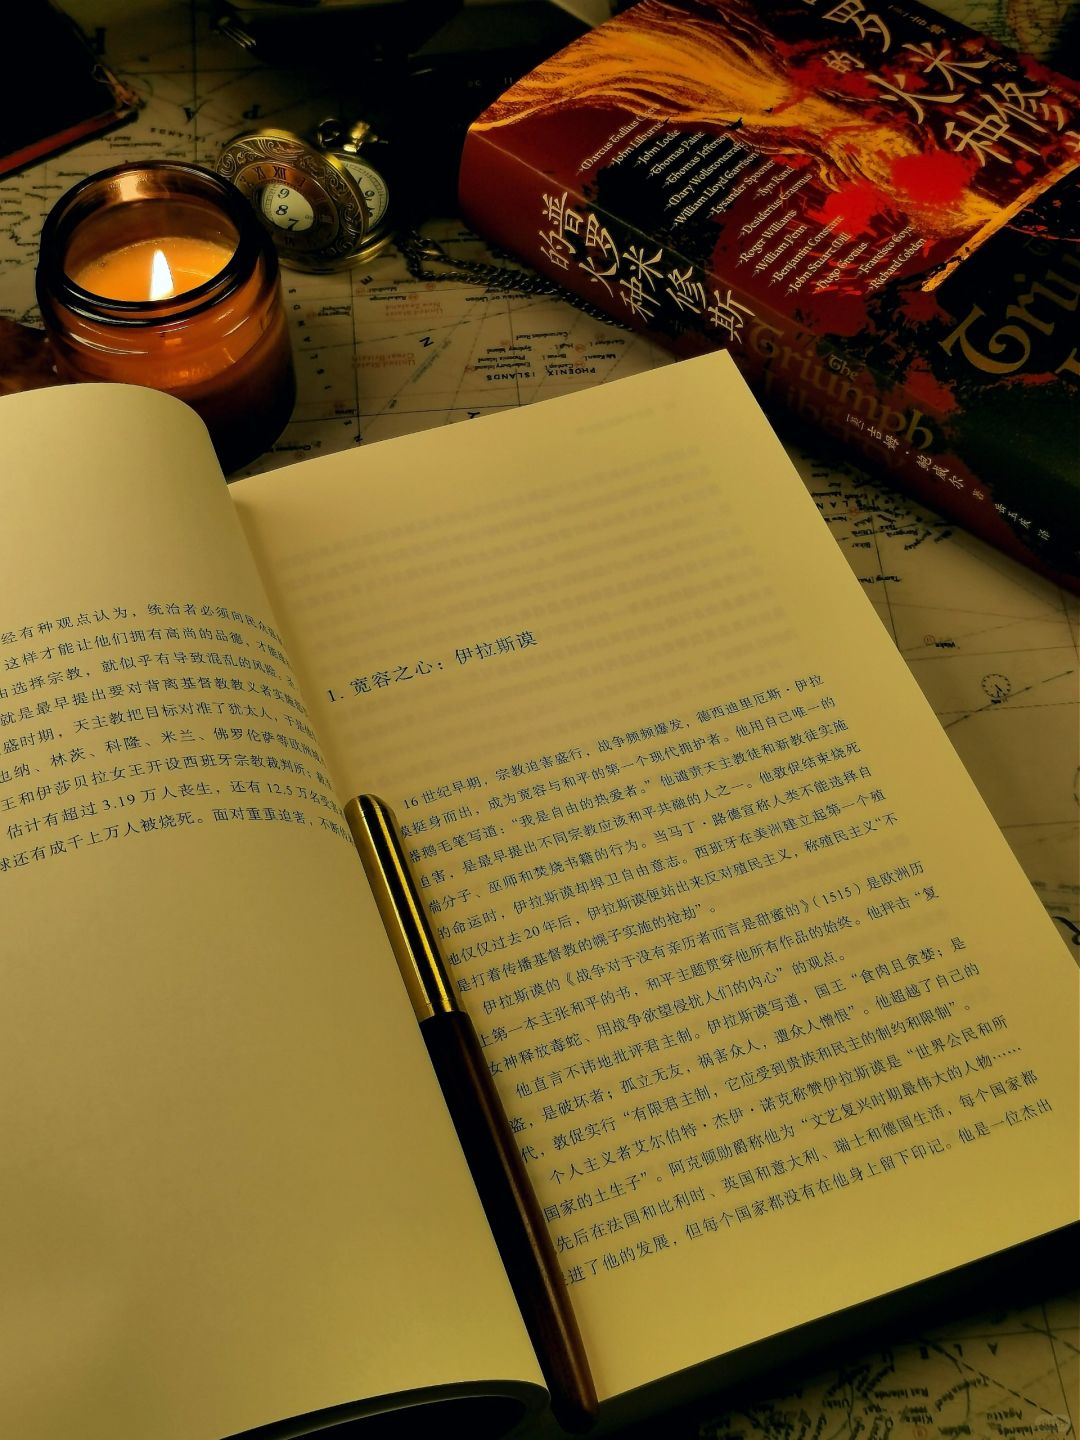 普罗米修斯的火种
The
Triumph
[美]吉姆·鲍威尔 著
罗米修
的火种
Marcus Tullius
John Lilburne
John Locke
Thomas Paine
Thomas Jefferson
Mary Wollstonecraft
William Lloyd Garrison
Lysander Spooner
Ayn Rand
Desiderius Erasmus
Roger Williams
William Penn
Benjamin Constant
John Stuart Mill
Hugo Grotius
Francisco Goya
Richard Cobden
9
8
7
PHOENIX
ISLANDS
经有种观点认为，统治者必须向民众
这样才能让他们拥有高尚的品德，才能
由选择宗教，就似乎有导致混乱的风险。
就是最早提出要对背离基督教教义者实施
盛时期，天主教把目标对准了犹太人，于是
也纳、林茨、科隆、米兰、佛罗伦萨等欧洲
王和伊莎贝拉女王开设西班牙宗教裁判所；
估计有超过 3.19 万人丧生，还有 12.5 万名
球还有成千上万人被烧死。面对重重迫害，不断
1. 宽容之心：伊拉斯谟
16 世纪早期，宗教迫害盛行，战争频频爆发，德西迪里厄斯·伊拉
谟挺身而出，成为宽容与和平的第一个现代拥护者。他用自己唯一的
器鹅毛笔写道：“我是自由的热爱者。”他谴责天主教徒和新教徒实施
迫害，是最早提出不同宗教应该和平共融的人之一。他敦促结束烧死
端分子、巫师和焚烧书籍的行为。当马丁·路德宣称人类不能选择自
的命运时，伊拉斯谟却捍卫自由意志。西班牙在美洲建立起第一个殖
地仅仅过去 20 年后，伊拉斯谟便站出来反对殖民主义，称殖民主义“不
是打着传播基督教的幌子实施的抢劫”。
伊拉斯谟的《战争对于没有亲历者而言是甜蜜的》（1515）是欧洲历
上第一本主张和平的书，和平主题贯穿他所有作品的始终。他抨击“复
女神释放毒蛇、用战争欲望侵扰人们的内心”的观点。
他直言不讳地批评君主制。伊拉斯谟写道，国王“食肉且贪婪；是
盗，是破坏者；孤立无友，祸害众人，遭众人憎恨”。他超越了自己的
代，敦促实行“有限君主制，它应受到贵族和民主的制约和限制”。
个人主义者艾尔伯特·杰伊·诺克称赞伊拉斯谟是“世界公民和所
国家的土生子”。阿克顿勋爵称他为“文艺复兴时期最伟大的人物……
先后在法国和比利时、英国和意大利、瑞士和德国生活，每个国家都
进了他的发展，但每个国家都没有在他身上留下印记。他是一位杰出